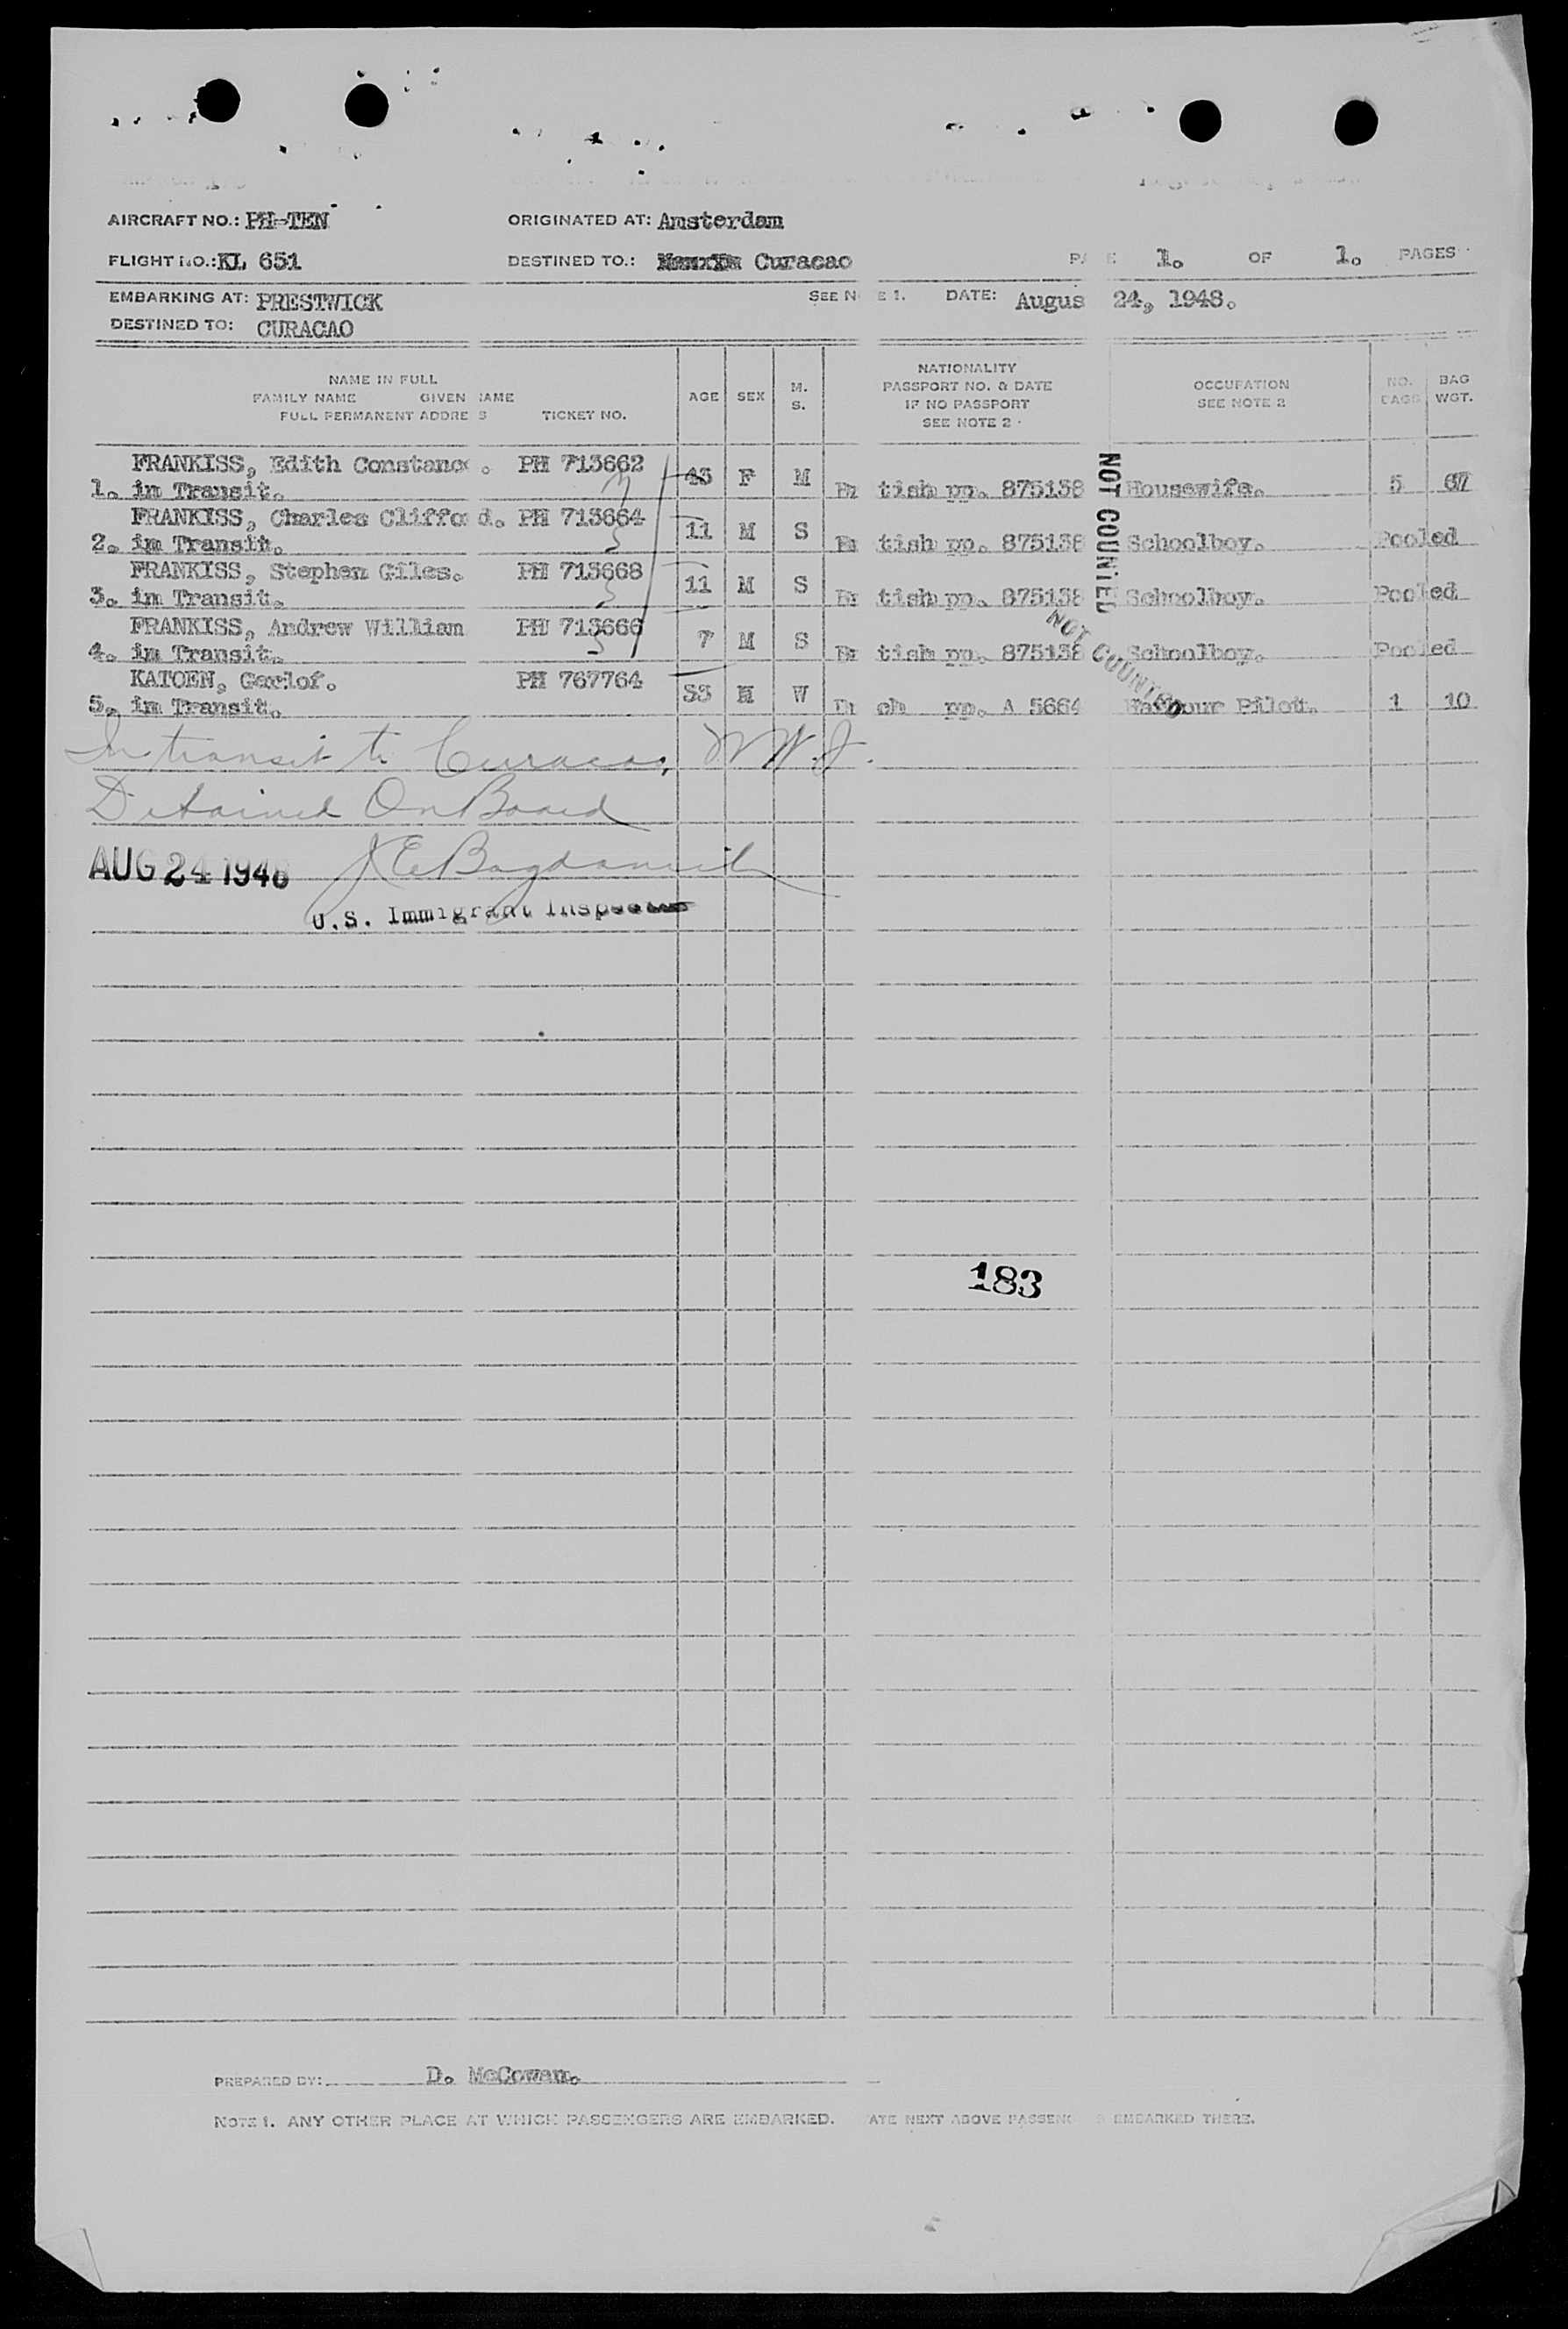 AIRCRAFT NO.: PH-TEN ORIGINATED AT: Amsterdam
FLIGHT NO.: KL 651 DESTINED TO.: Curacao PA E 1. OF 1. PAGES
EMBARKING AT: PRESTWICK SEE N E 1. DATE: Augus 24, 1948.
DESTINED TO: CURACAO
NAME IN FULL
FAMILY NAME GIVEN NAME
FULL PERMANENT ADDRE S TICKET NO.
AGE SEX M. S.
NATIONALITY
PASSPORT NO. & DATE
IF NO PASSPORT
SEE NOTE 2
OCCUPATION
SEE NOTE 2
NO. BAGS
BAG WGT.
FRANKISS, Edith Constance. PH 713662
1. in Transit. 43 F M Br tish pp. 875138 Housewife. 5 67
FRANKISS, Charles Cliffo d. PH 713664
2. in Transit. 11 M S Br tish pp. 875138 Schoolboy. Pooled
FRANKISS, Stephen Giles. PH 713668
3. in Transit. 11 M S Br tish pp. 875138 Schoolboy. Pooled
FRANKISS, Andrew William PH 713666
4. in Transit. 7 M S Br tish pp. 875138 Schoolboy. Pooled
KATOEN, Gerlof. PH 767764
5. in Transit. 33 M W Du ch pp. A 5664 Harbour Pilot. 1 10
NOT COUNTED
NOT COUNTED
In transit to Curacao,
Detained On Board
AUG 24 1948
U.S. Immigrant Inspector
183
PREPARED BY: D. McCowan.
NOTE 1. ANY OTHER PLACE AT WHICH PASSENGERS ARE EMBARKED. ATE NEXT ABOVE PASSENG S EMBARKED THERE.